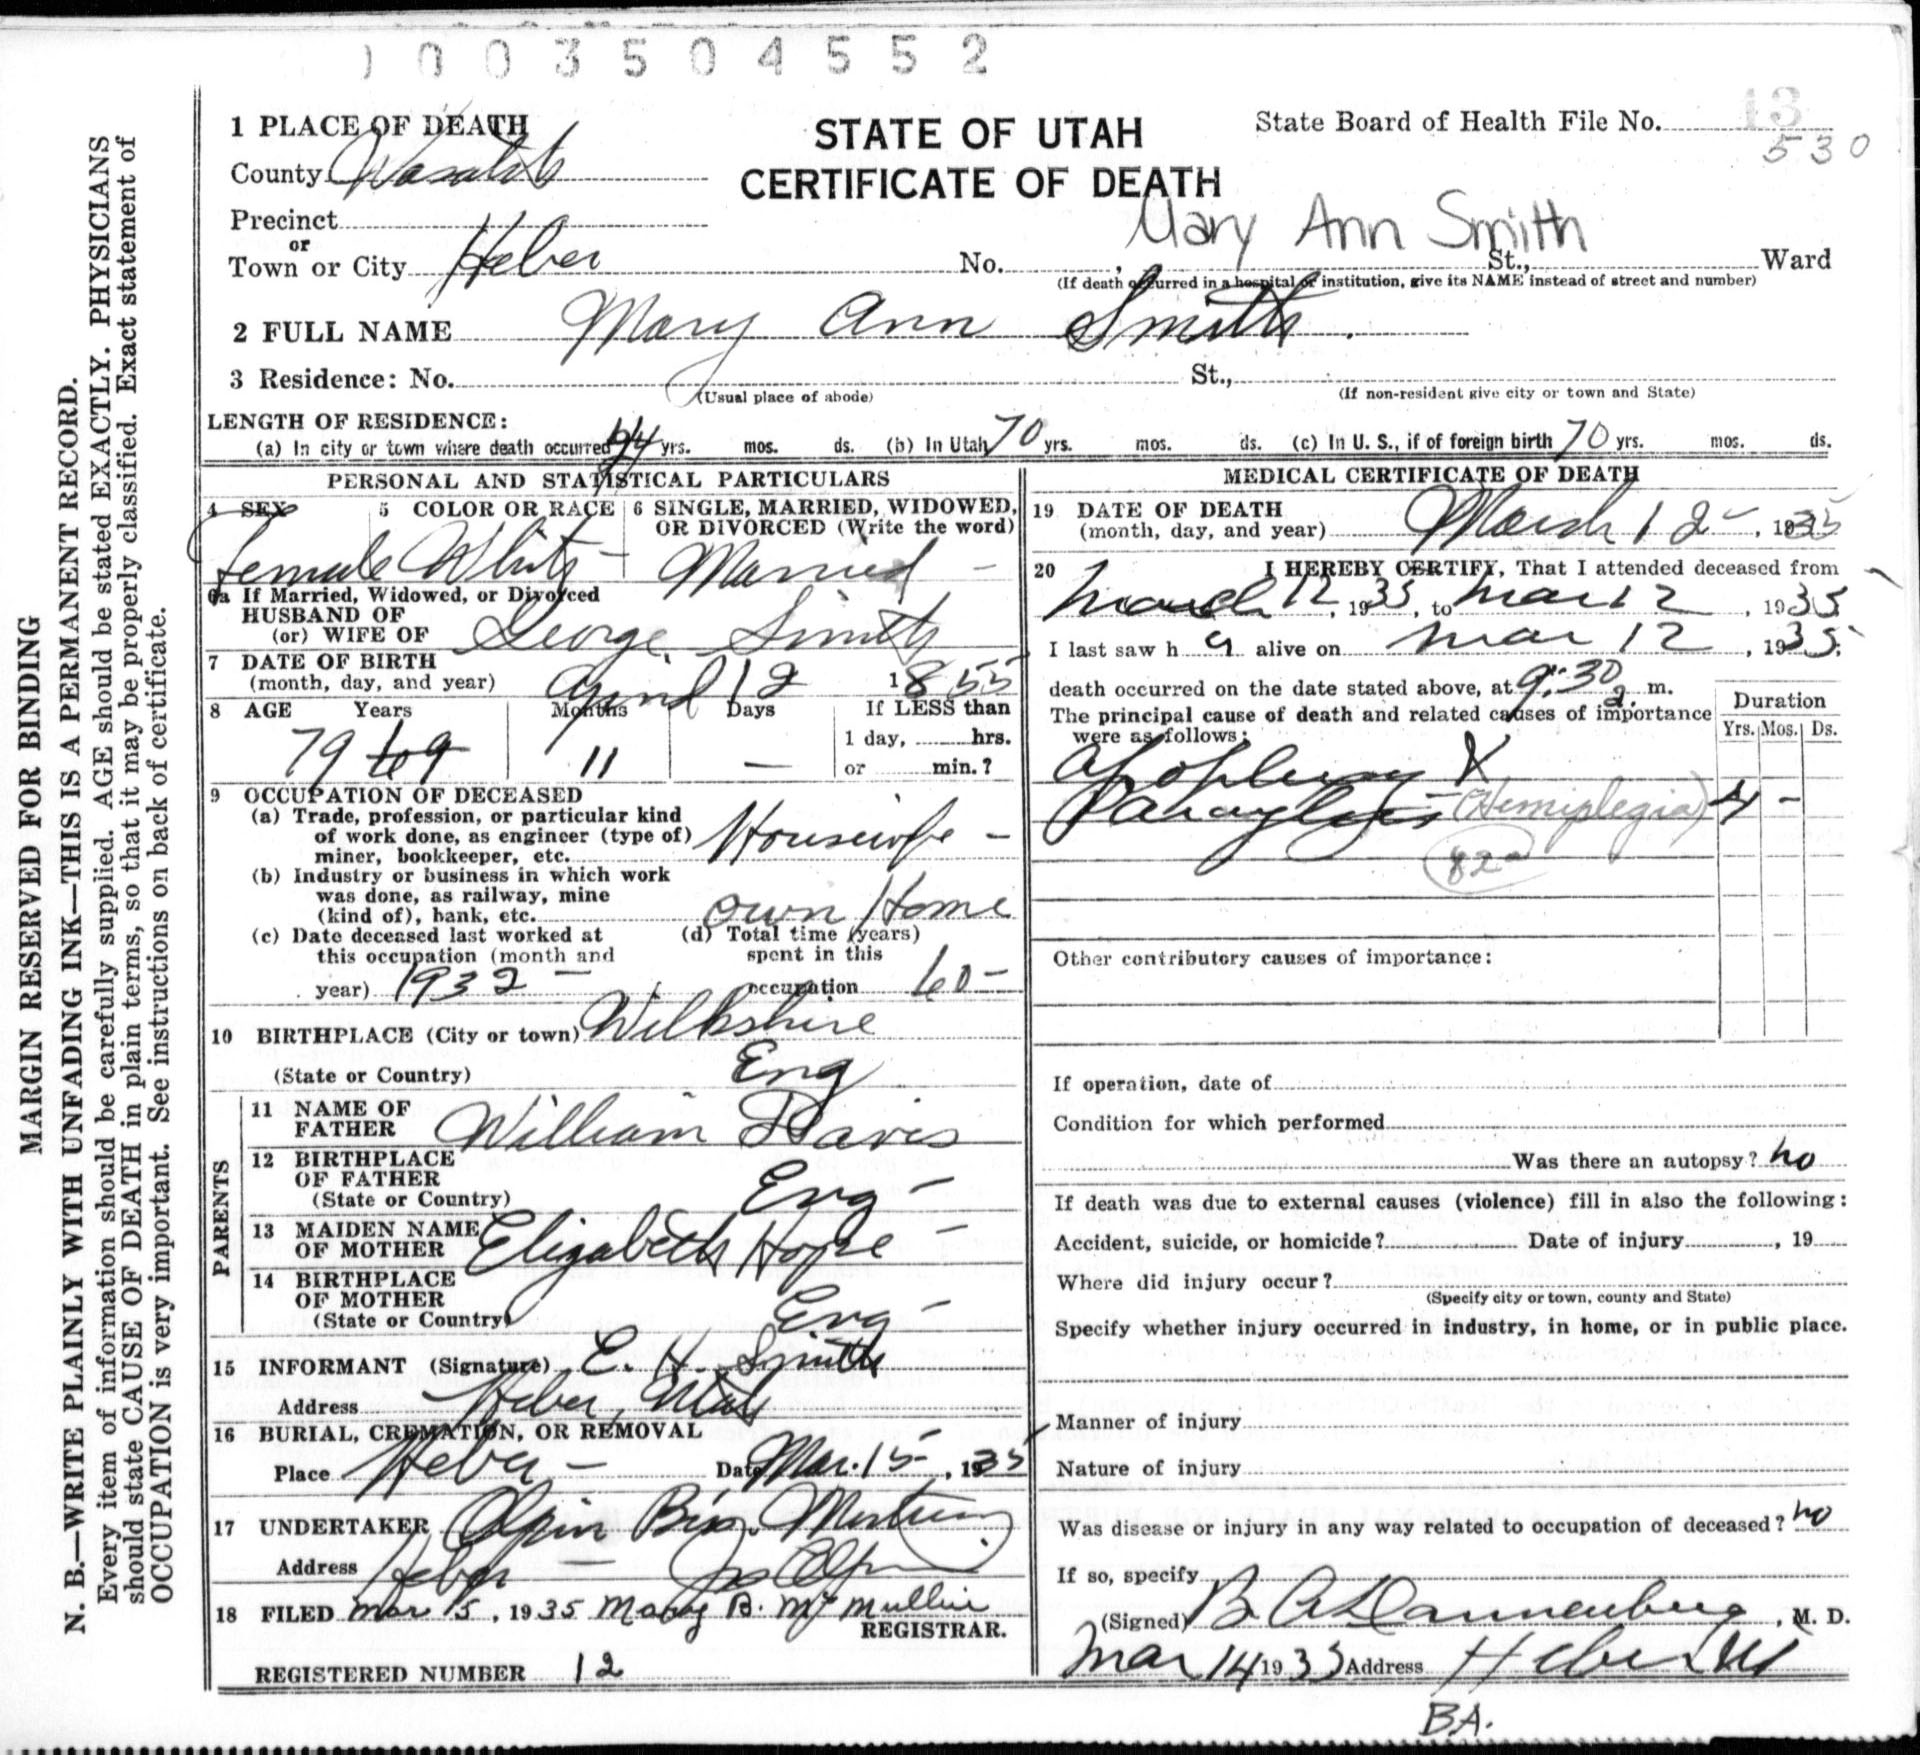 1003504552
1 PLACE OF DEATH
STATE OF UTAH
CERTIFICATE OF DEATH
State Board of Health File No. 13
530
County Wasatch
Precinct
or
Town or City Heber No. , St., Ward
Mary Ann Smith
(If death occurred in a hospital or institution, give its NAME instead of street and number)
2 FULL NAME Mary Ann Smith
3 Residence: No. St.,
(Usual place of abode) (If non-resident give city or town and State)
LENGTH OF RESIDENCE:
(a) In city or town where death occurred yrs. mos. ds. (b) In Utah 70 yrs. mos. ds. (c) In U. S., if of foreign birth 70 yrs. mos. ds.
PERSONAL AND STATISTICAL PARTICULARS
4 SEX 5 COLOR OR RACE 6 SINGLE, MARRIED, WIDOWED,
OR DIVORCED (Write the word)
Female White Married
6a If Married, Widowed, or Divorced
HUSBAND OF
(or) WIFE OF George Smith
7 DATE OF BIRTH
(month, day, and year) April 12 1855
8 AGE Years Months Days If LESS than
1 day, hrs.
or min.?
79 69 11 —
9 OCCUPATION OF DECEASED
(a) Trade, profession, or particular kind
of work done, as engineer (type of)
miner, bookkeeper, etc. Housewife -
(b) Industry or business in which work
was done, as railway, mine
(kind of), bank, etc. own Home
(c) Date deceased last worked at
this occupation (month and
year) 1932 -
(d) Total time (years)
spent in this
occupation 60 -
10 BIRTHPLACE (City or town) Wilkshire
(State or Country) Eng
PARENTS
11 NAME OF
FATHER William Davis
12 BIRTHPLACE
OF FATHER
(State or Country) Eng -
13 MAIDEN NAME
OF MOTHER Elizabeth Hope -
14 BIRTHPLACE
OF MOTHER
(State or Country) Eng -
15 INFORMANT (Signature) E. H. Smith
Address Heber, Utah
16 BURIAL, CREMATION, OR REMOVAL
Place Heber - Date Mar. 15 - , 1935
17 UNDERTAKER Olpin Bros. Mortuary
Address Heber -
18 FILED Mar 15, 1935 Mary B. McMullin
REGISTRAR.
REGISTERED NUMBER 12
MEDICAL CERTIFICATE OF DEATH
19 DATE OF DEATH
(month, day, and year) March 12 - , 1935
20 I HEREBY CERTIFY, That I attended deceased from
March 12, 1935, to Mar 12, 1935
I last saw h alive on Mar 12, 1935;
death occurred on the date stated above, at 9:30 a. m.
The principal cause of death and related causes of importance
were as follows:
Duration
Yrs. Mos. Ds.
Apoplexy X
Paraylysis (Hemiplegia) 4 -
82a
Other contributory causes of importance:
If operation, date of
Condition for which performed
Was there an autopsy? no
If death was due to external causes (violence) fill in also the following:
Accident, suicide, or homicide? Date of injury , 19
Where did injury occur?
(Specify city or town, county and State)
Specify whether injury occurred in industry, in home, or in public place.
Manner of injury
Nature of injury
Was disease or injury in any way related to occupation of deceased? no
If so, specify
(Signed) B A Dannenberg , M. D.
Mar 14 1935 Address Heber Ut
BA.
MARGIN RESERVED FOR BINDING
N. B.—WRITE PLAINLY WITH UNFADING INK—THIS IS A PERMANENT RECORD.
Every item of information should be carefully supplied. AGE should be stated EXACTLY. PHYSICIANS
should state CAUSE OF DEATH in plain terms, so that it may be properly classified. Exact statement of
OCCUPATION is very important. See instructions on back of certificate.